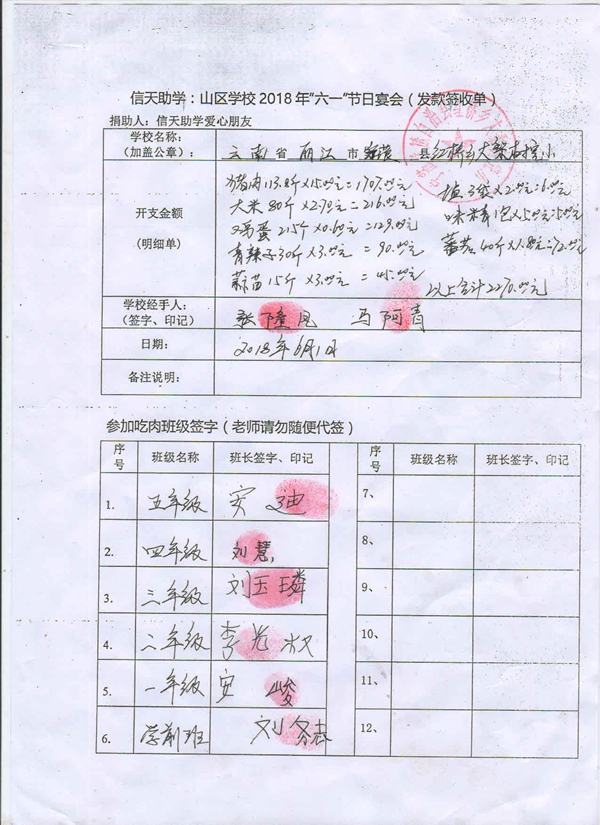 信天助学：山区学校 2018 年“六一”节日宴会（发款签收单）
捐助人：信天助学爱心朋友
学校名称：
（加盖公章）：
云南省 丽江市 宁蒗县
开支金额
（明细单）
猪肉113.8斤×15.00元=1707.00元
大米80斤×2.70元=216.00元
鸡蛋215个×0.6元=129.00元
青辣子30斤×3.00元=90.00元
蒜苗15斤×3.00元=45.00元
盐3袋×2.00元=6.00元
味精1包×5.00元=5.00元
蕃茄40斤×1.80元=72.00元
以上合计2270.00元
学校经手人：
（签字、印记）
张隆凤 马阿青
日期：
2018年6月1日
备注说明：
参加吃肉班级签字（老师请勿随便代签）
序号 班级名称 班长签字、印记 序号 班级名称 班长签字、印记
1. 五年级 安迪 7、
2. 四年级 刘慧 8、
3. 三年级 刘玉璘 9、
4. 二年级 李光 10、
5. 一年级 安峻 11、
6. 学前班 刘冬志 12、